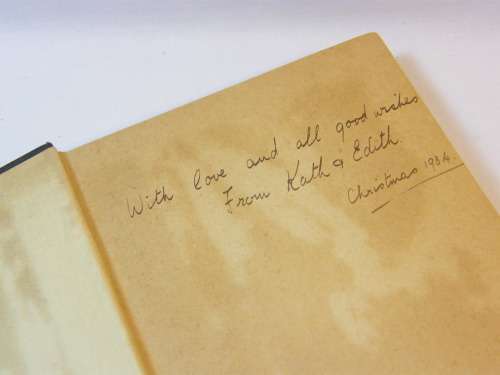 With love and all good wishes
From Kath & Edith.
Christmas 1934.